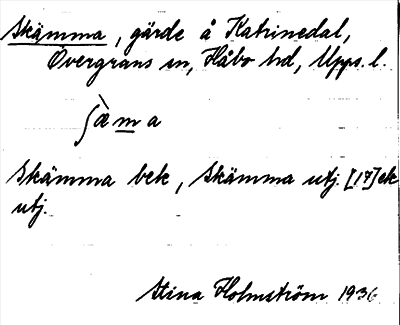 Skämma, gärde å Katrinedal,
Övergrans sn, Håbo hd, Upps. l.
ʃὰm̲a
Skämma bek, Skämma utj. [17] ek
utj.
Stina Holmström 1936